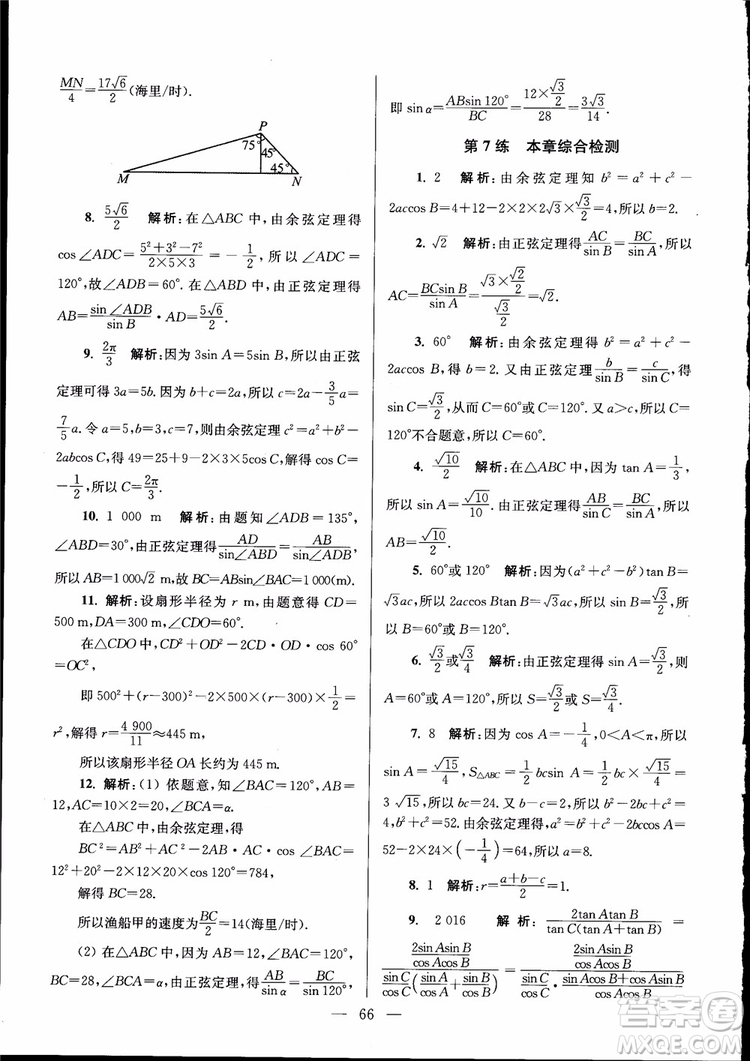 MN/4=17√6/2(海里/时).
P
75°
45°
45°
M
N
8. 5√6/2 解析:在△ABC 中,由余弦定理得
cos∠ADC=(5²+3²-7²)/(2×5×3)=-1/2,所以∠ADC=
120°,故∠ADB=60°.在△ABD 中,由正弦定理得
AB=sin∠ADB/sin B·AD=5√6/2.
9. 2π/3 解析:因为3sin A=5sin B,所以由正弦
定理可得 3a=5b.因为 b+c=2a,所以 c=2a-3/5a=
7/5a.令 a=5,b=3,c=7,则由余弦定理 c²=a²+b²-
2abcos C,得 49=25+9-2×3×5cos C,解得 cos C=
-1/2,所以 C=2π/3.
10. 1 000 m 解析:由题知∠ADB=135°,
∠ABD=30°,由正弦定理得AD/sin∠ABD=AB/sin∠ADB,
所以 AB=1 000√2 m,故 BC=ABsin∠BAC=1 000 m.
11. 解析:设扇形半径为 r m,由题意得 CD=
500 m,DA=300 m,∠CDO=60°.
在△CDO 中,CD²+OD²-2CD·OD·cos 60°
=OC²,
即 500²+(r-300)²-2×500×(r-300)×1/2=
r²,解得 r=4 900/11≈445 m,
所以该扇形半径 OA 长约为 445 m.
12. 解析:(1) 依题意,知∠BAC=120°,AB=
12,AC=10×2=20,∠BCA=α.
在△ABC 中,由余弦定理,得
BC²=AB²+AC²-2AB·AC·cos∠BAC=
12²+20²-2×12×20×cos 120°=784,
解得 BC=28.
所以渔船甲的速度为BC/2=14(海里/时).
(2) 在△ABC 中,AB=12,∠BAC=120°,
BC=28,∠BCA=α,由正弦定理,得AB/sin α=BC/sin 120°,
即 sin α=ABsin 120°/BC=(12×√3/2)/28=3√3/14.
第 7 练 本章综合检测
1. 2 解析:由余弦定理知 b²=a²+c²-
2accos B=4+12-2×2×2√3×√3/2=4,所以 b=2.
2. √2 解析:由正弦定理得AC/sin B=BC/sin A,所以
AC=BCsin B/sin A=(√3×√2/2)/(√3/2)=√2.
3. 60° 解析:由余弦定理得 b²=a²+c²-
2accos B,得 b=2.再由正弦定理b/sin B=c/sin C,得
sin C=√3/2,从而 C=60°或 C=120°.又 a>c,所以 C=
120°不合题意,所以 C=60°.
4. √10/2 解析:在△ABC中,因为 tan A=1/3,
所以 sin A=√10/10.由正弦定理得AB/sin C=BC/sin A,所以
AB=√10/2.
5. 60°或 120° 解析:因为(a²+c²-b²)tan B=
√3ac,所以 2accos Btan B=√3ac,所以 sin B=√3/2,所
以 B=60°或 120°.
6. √3/2或√3/4 解析:由正弦定理得 sin C=√3/2,则
A=60°或 A=120°,所以 S=√3/2或 S=√3/4.
7. 8 解析:因为 cos A=-1/4,0<A<π,所以
sin A=√15/4,S△ABC=1/2bcsin A=1/2bc×√15/4=
3√15,所以 bc=24.又 b-c=2,所以 b²-2bc+c²=
4,b²+c²=52.由余弦定理得,a²=b²+c²-2bccos A=
52-2×24×(-1/4)=64,所以 a=8.
8. 1 解析:r=(a+b-c)/2=1.
9. 2 016 解析:2tan Atan B/tan C(tan A+tan B)=
(2sin Asin B/cos Acos B)/(sin C/cos C(sin A/cos A+sin B/cos B))=(2sin Asin B/cos Acos B)/(sin C/cos C·(sin Acos B+cos Asin B)/cos Acos B)=
— 66 —
答案圈
MXQE.COM